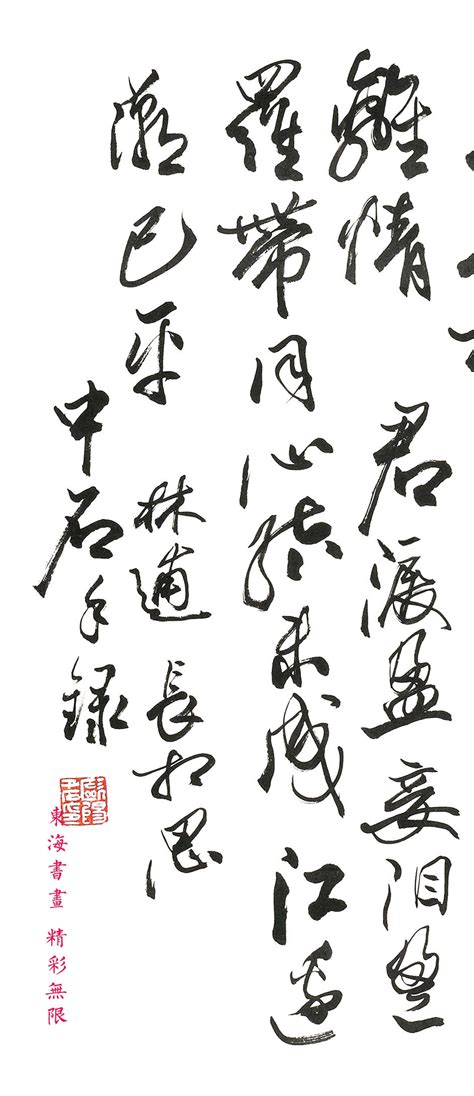 離情 君淚盈妾泪盈
羅帶同心結未成 江邊
潮已平 林逋長相思
中石手錄
東海書畫 精彩無限